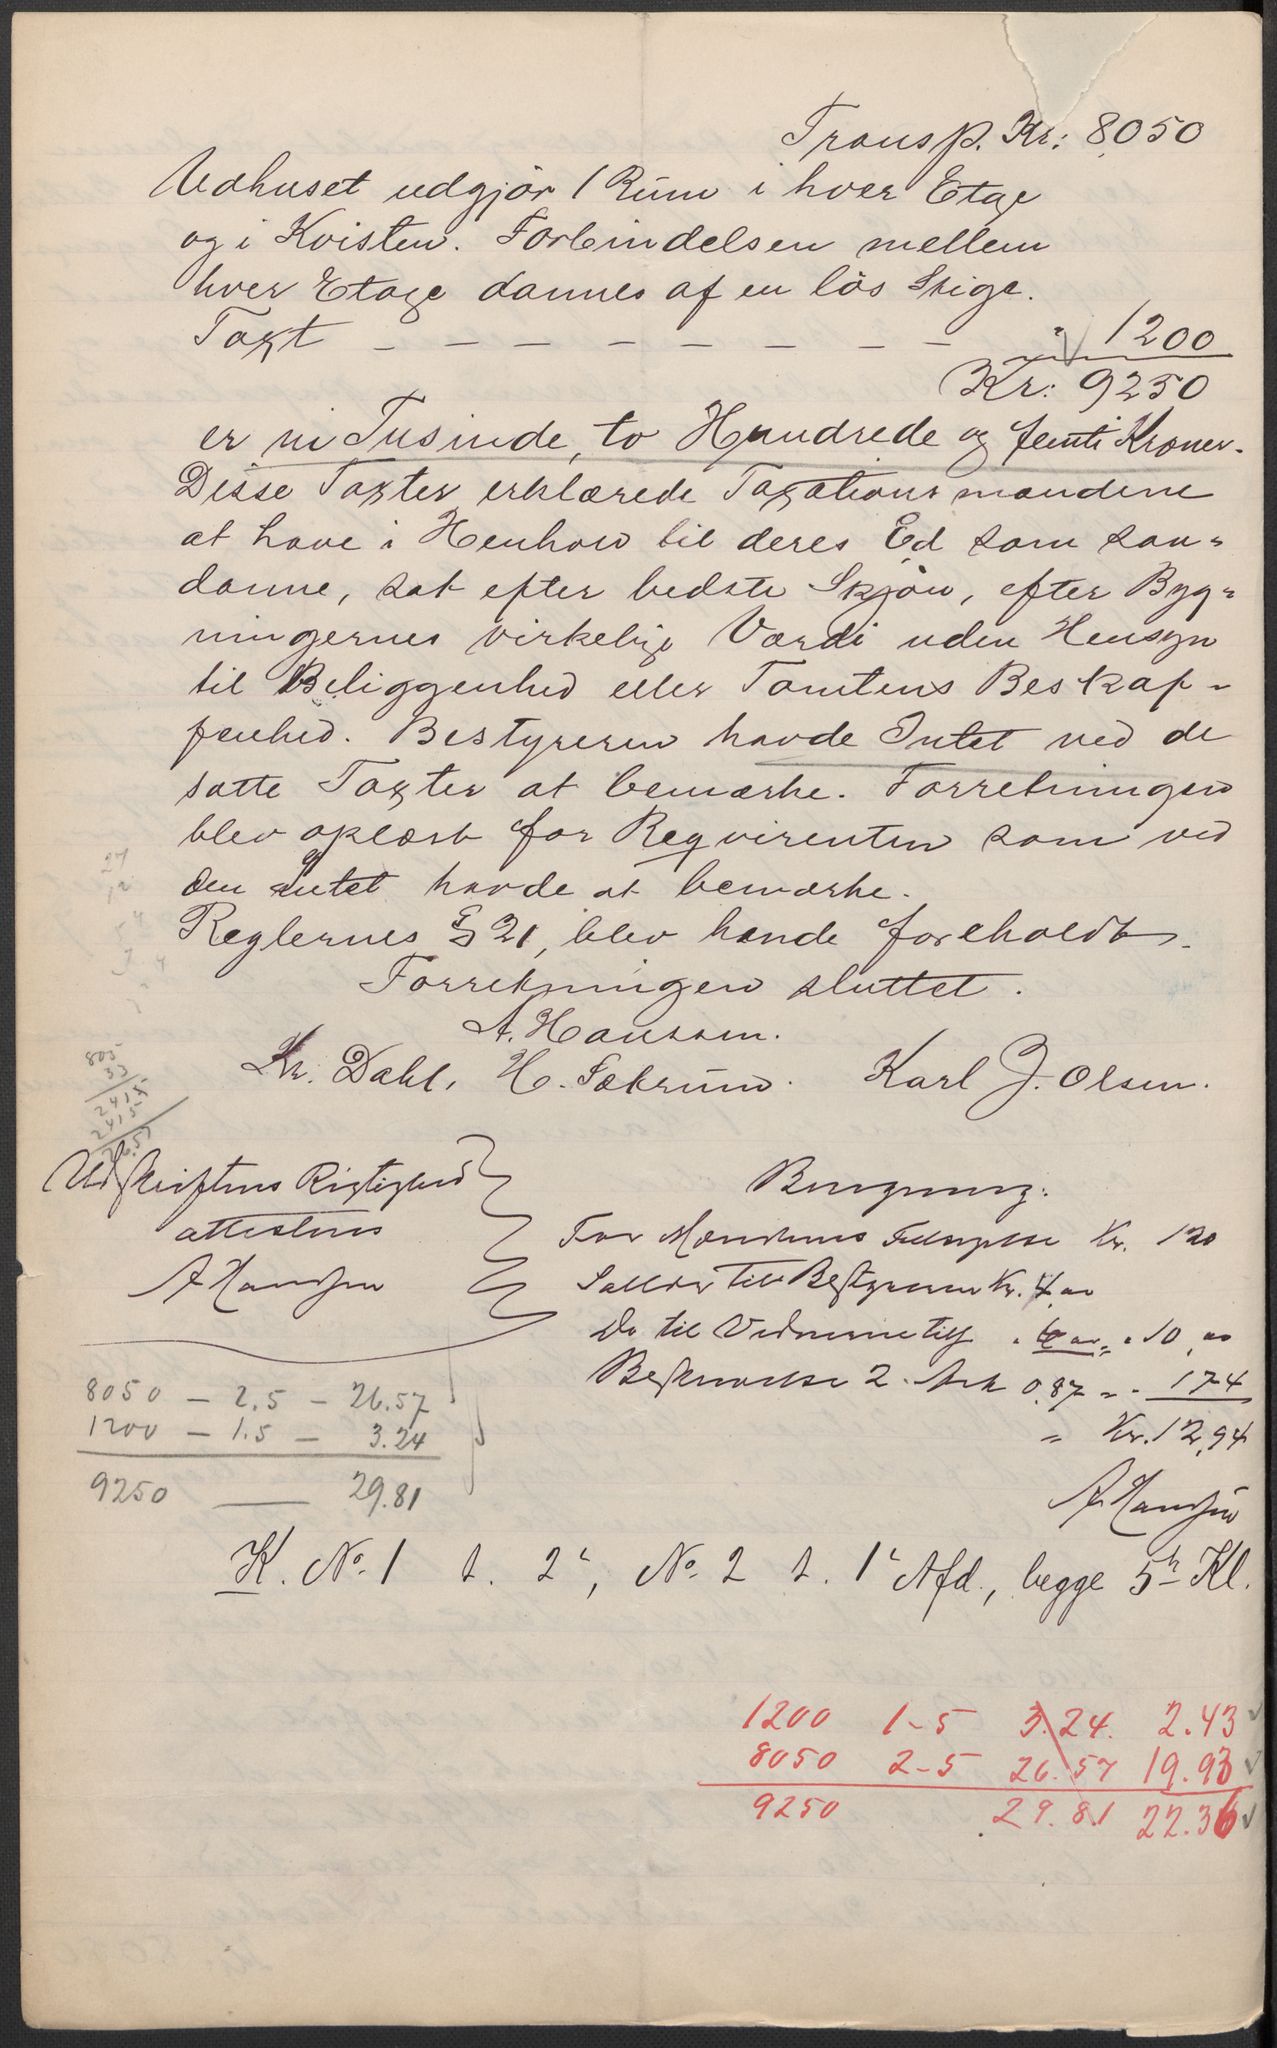 Transp. Kr: 8050
Vedhuset udgjör 1 Rum i hver Etage
og i Kvisten. Forbindelsen mellem
hver Etage dannes af en lös Stige.
Taxt - - - - - - - - " 1200
Kr: 9250
er ni Tusinde, to Hundrede og femti Kroner.
Disse Taxter erklærede Taxationsmændene
at have i Henhold til deres Ed som saa-
danne, sat efter bedste Skjön, efter Byg-
ningernes virkelige Værdi uden Hensyn
til Beliggenhed eller Tomtens Beskaf-
fenhed. Bestyreren havde Intet ved de
satte Taxter at bemærke. Forretningen
blev oplæst for Reqvirenten som ved
den intet havde at bemærke.
Reglernes § 21, blev hende foreholdt.
Forretningen sluttet.
A. Hanssen.
Kr. Dahl, H. Sækrum. Karl J. Olsen.
805
33
2415
2415
26.57
Udskriftens Rigtighed
attesteres
A Hanssen
Beregning:
For Mændenes Kr. 1 20
Salær til Bestyreren Kr. 4,00
Do til Vidnerne " 6 00 " " 10,00
Beskrivelse 2 Ark 0.87 " " 1 74
" Kr. 12,94
A. Hanssen
8050 - 2.5 - 26.57
1200 - 1.5 - 3.24
9250 — 29.81
K. No. 1 t. 2', No. 2 t. 1' Afd., begge 5te Kl.
1200 1-5 3.24. 2.43
8050 2-5 26.57 19.93
9250 29.81 22.36